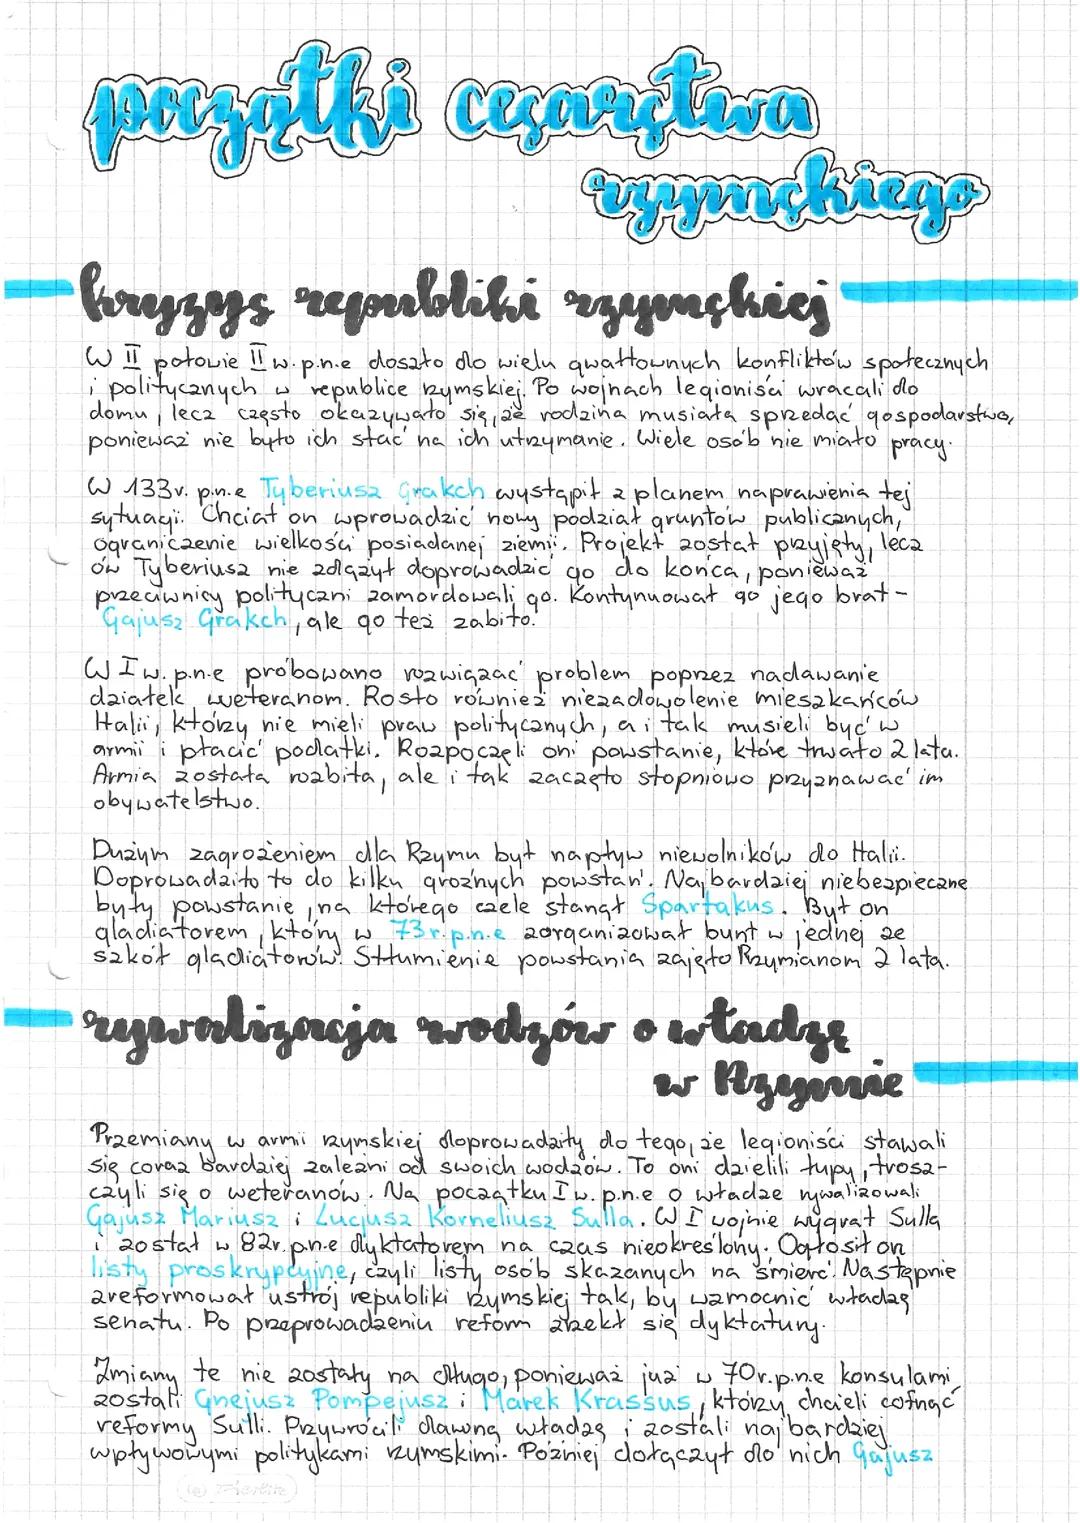 początki cesarstwa
rzymskiego
kryzys republiki rzymskiej
W II połowie II w. p.n.e doszło do wielu gwałtownych konfliktów społecznych
i politycznych w republice rzymskiej. Po wojnach legioniści wracali do
domu, lecz często okazywało się, że rodzina musiała sprzedać gospodarstwo,
ponieważ nie było ich stać na ich utrzymanie. Wiele osób nie miało pracy.
W 133r. p.n.e Tyberiusz Grakch wystąpił z planem naprawienia tej
sytuacji. Chciał on wprowadzić nowy podział gruntów publicznych,
ograniczenie wielkości posiadanej ziemi. Projekt został przyjęty, lecz
ów Tyberiusz nie zdążył doprowadzić go do końca, ponieważ
przeciwnicy polityczni zamordowali go. Kontynuował go jego brat -
Gajusz Grakch, ale go też zabito.
W I w. p.n.e próbowano rozwiązać problem poprzez nadawanie
działek weteranom. Rosło również niezadowolenie mieszkańców
Italii, którzy nie mieli praw politycznych, a i tak musieli być w
armii i płacić podatki. Rozpoczęli oni powstanie, które trwało 2 lata.
Armia została rozbita, ale i tak zaczęto stopniowo przyznawać im
obywatelstwo.
Dużym zagrożeniem dla Rzymu był napływ niewolników do Italii.
Doprowadziło to do kilku groźnych powstań. Najbardziej niebezpieczne
były powstanie, na którego czele stanął Spartakus. Był on
gladiatorem, który w 73 r.p.n.e zorganizował bunt w jednej ze
szkół gladiatorów. Stłumienie powstania zajęło Rzymianom 2 lata.
rywalizacja wodzów o władzę
w Rzymie
Przemiany w armii rzymskiej doprowadziły do tego, że legioniści stawali
się coraz bardziej zależni od swoich wodzów. To oni dzielili łupy, trosz-
czyli się o weteranów. Na początku I w. p.n.e o władze rywalizowali
Gajusz Mariusz i Lucjusz Korneliusz Sulla. W I wojnie wygrał Sulla
i został w 82r. p.n.e dyktatorem na czas nieokreślony. Ogłosił on
listy proskrypcyjne, czyli listy osób skazanych na śmierć. Następnie
zreformował ustrój republiki rzymskiej tak, by wzmocnić władzę
senatu. Po przeprowadzeniu reform zrzekł się dyktatury.
Zmiany te nie zostały na długo, ponieważ już w 70r. p.n.e konsulami
zostali Gnejusz Pompejusz i Marek Krassus, którzy chcieli cofnąć
reformy Sulli. Przywrócili dawną władzę i zostali najbardziej
wpływowymi politykami rzymskimi. Później dołączył do nich Gajusz